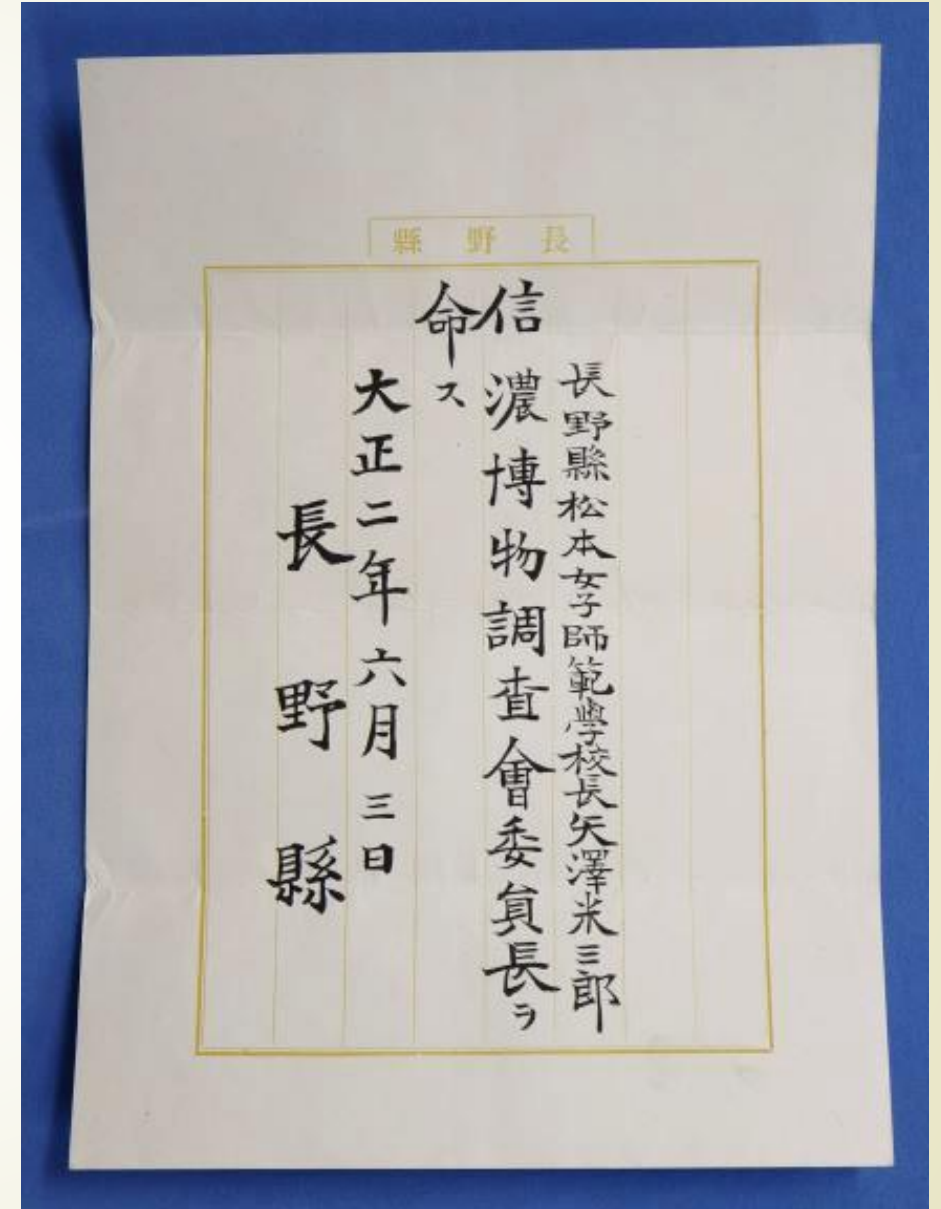 長野縣
長野縣松本女子師範學校長矢澤米三郎
信濃博物調査會委員長ヲ
命ス
大正二年六月三日
長野縣